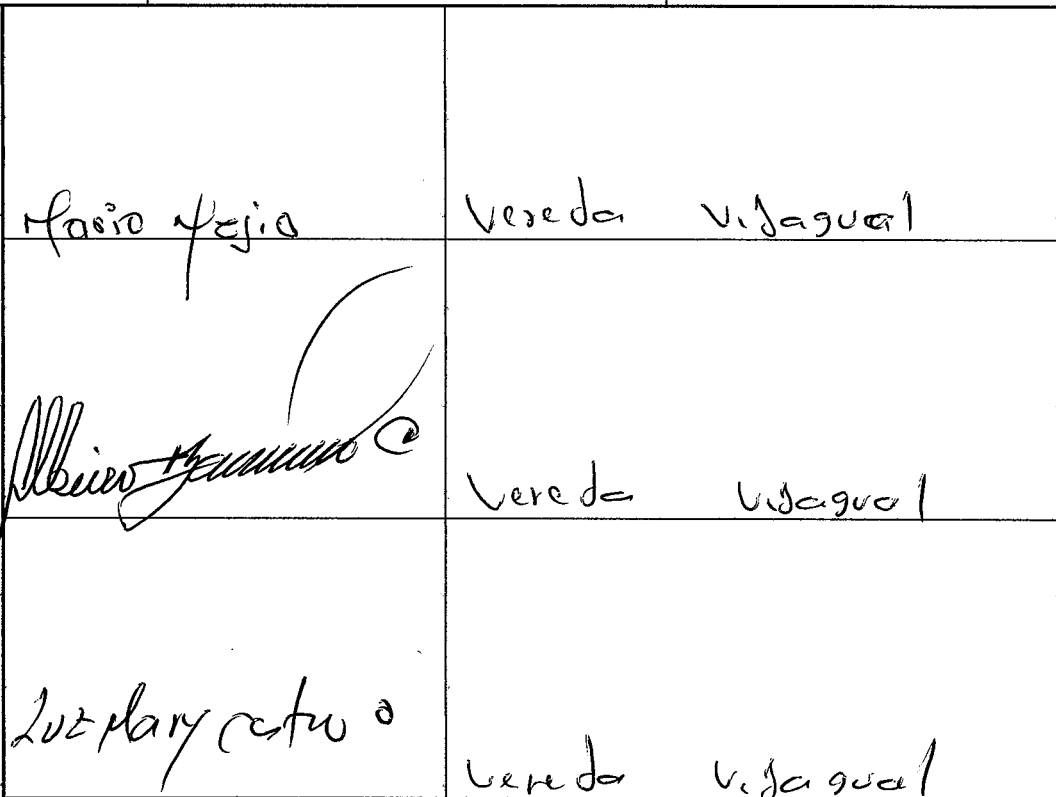 Mario Mejia Vereda Vijagual
Albeiro C Vereda Vijagual
Luz Mary Castro O Vereda Vijagual